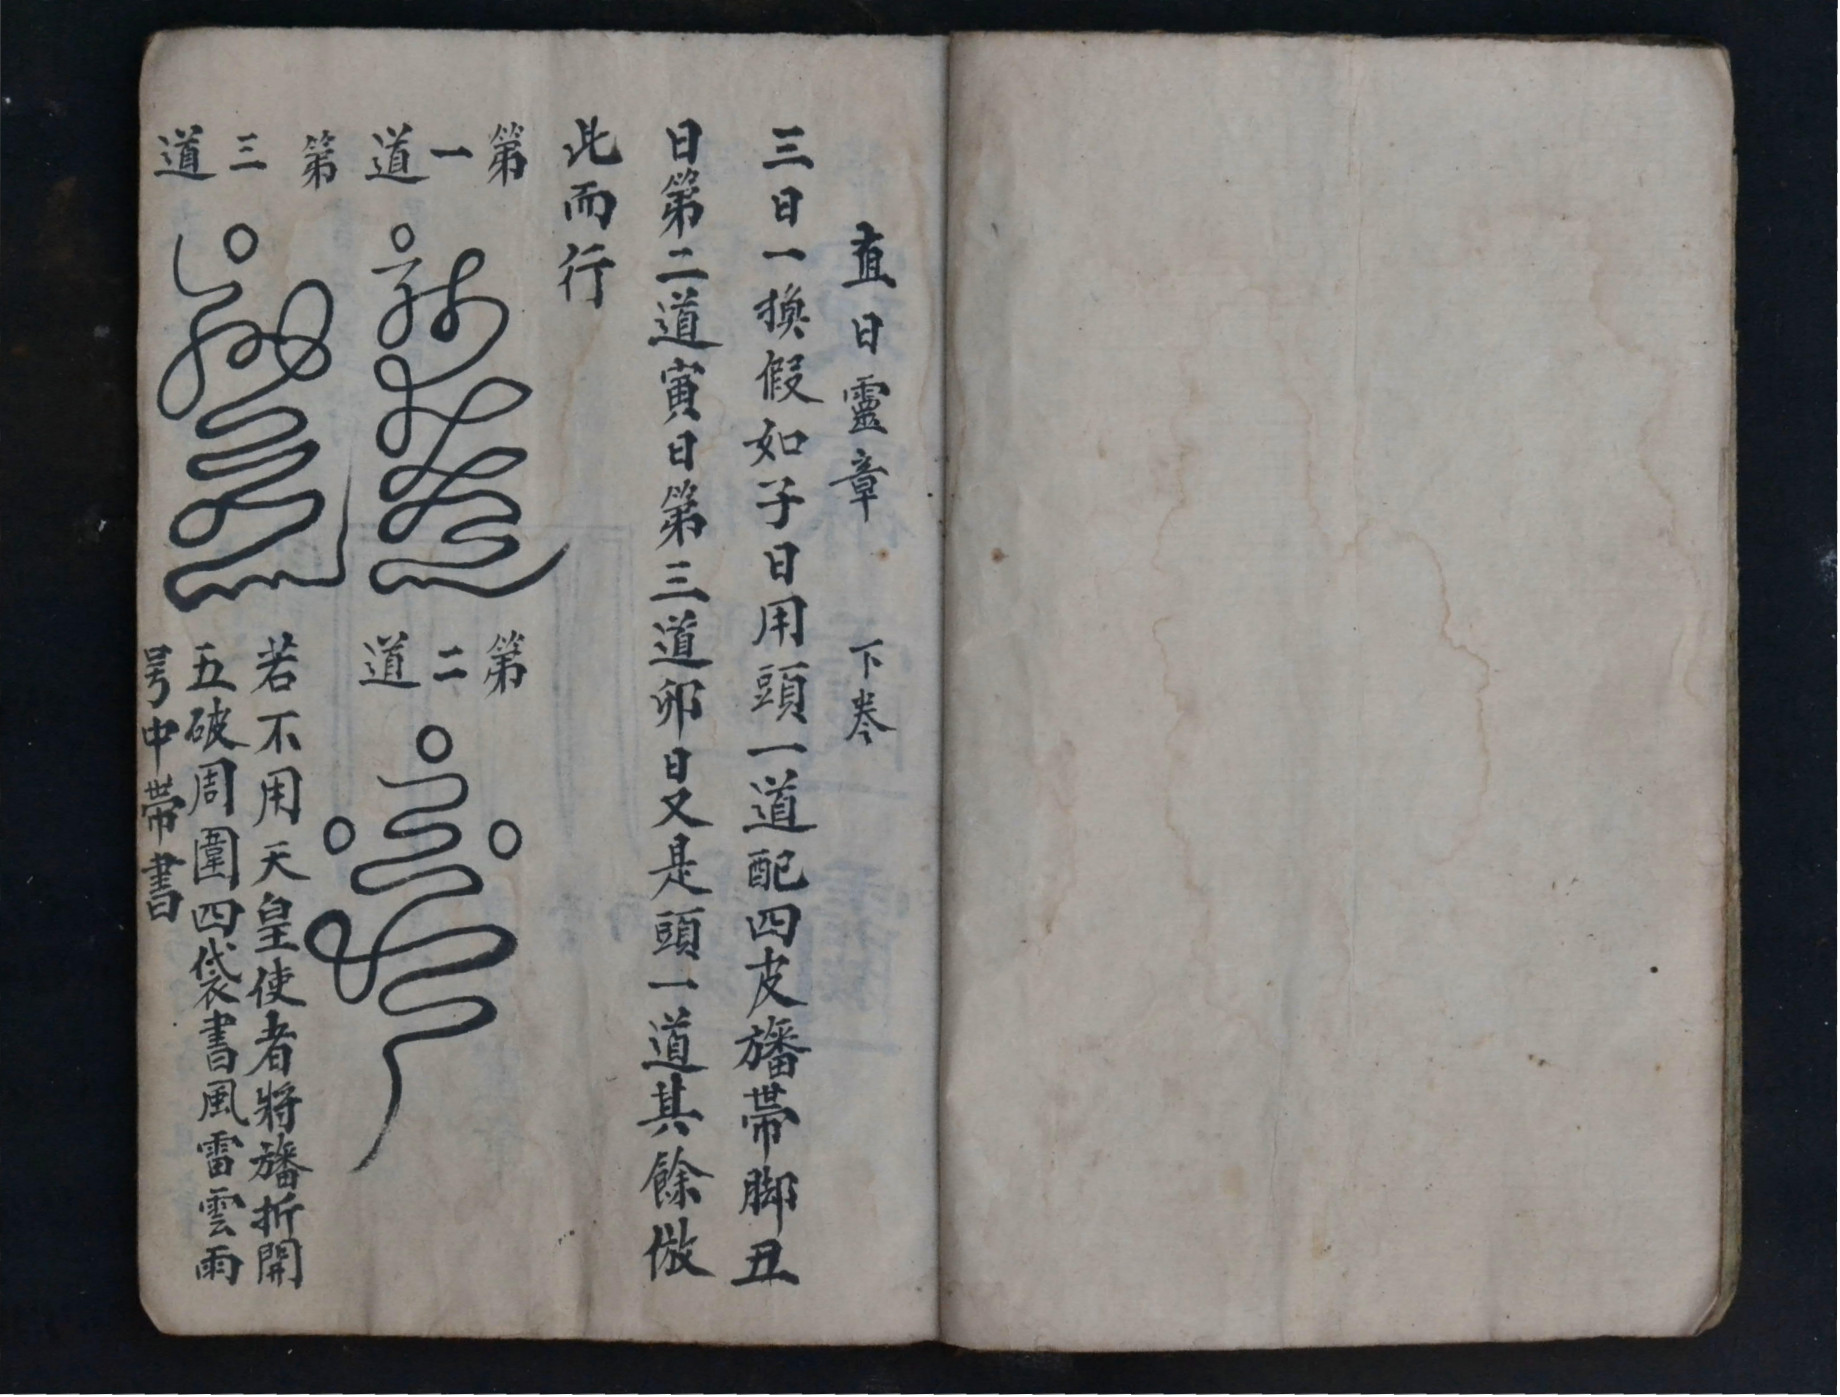 直日靈章　下卷
三日一換假如子日用頭一道配四皮旛帶脚丑
日第二道寅日第三道卯日又是頭一道其餘倣
此而行
第一道
第二道
第三道
若不用天皇使者將旛折開
五破周圍四袋書風雷雲雨
号中帶書